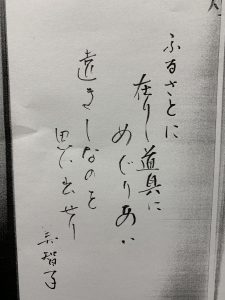 ふるさとに
在りし道具に
めぐりあい
遠きしなのを
思い出せり